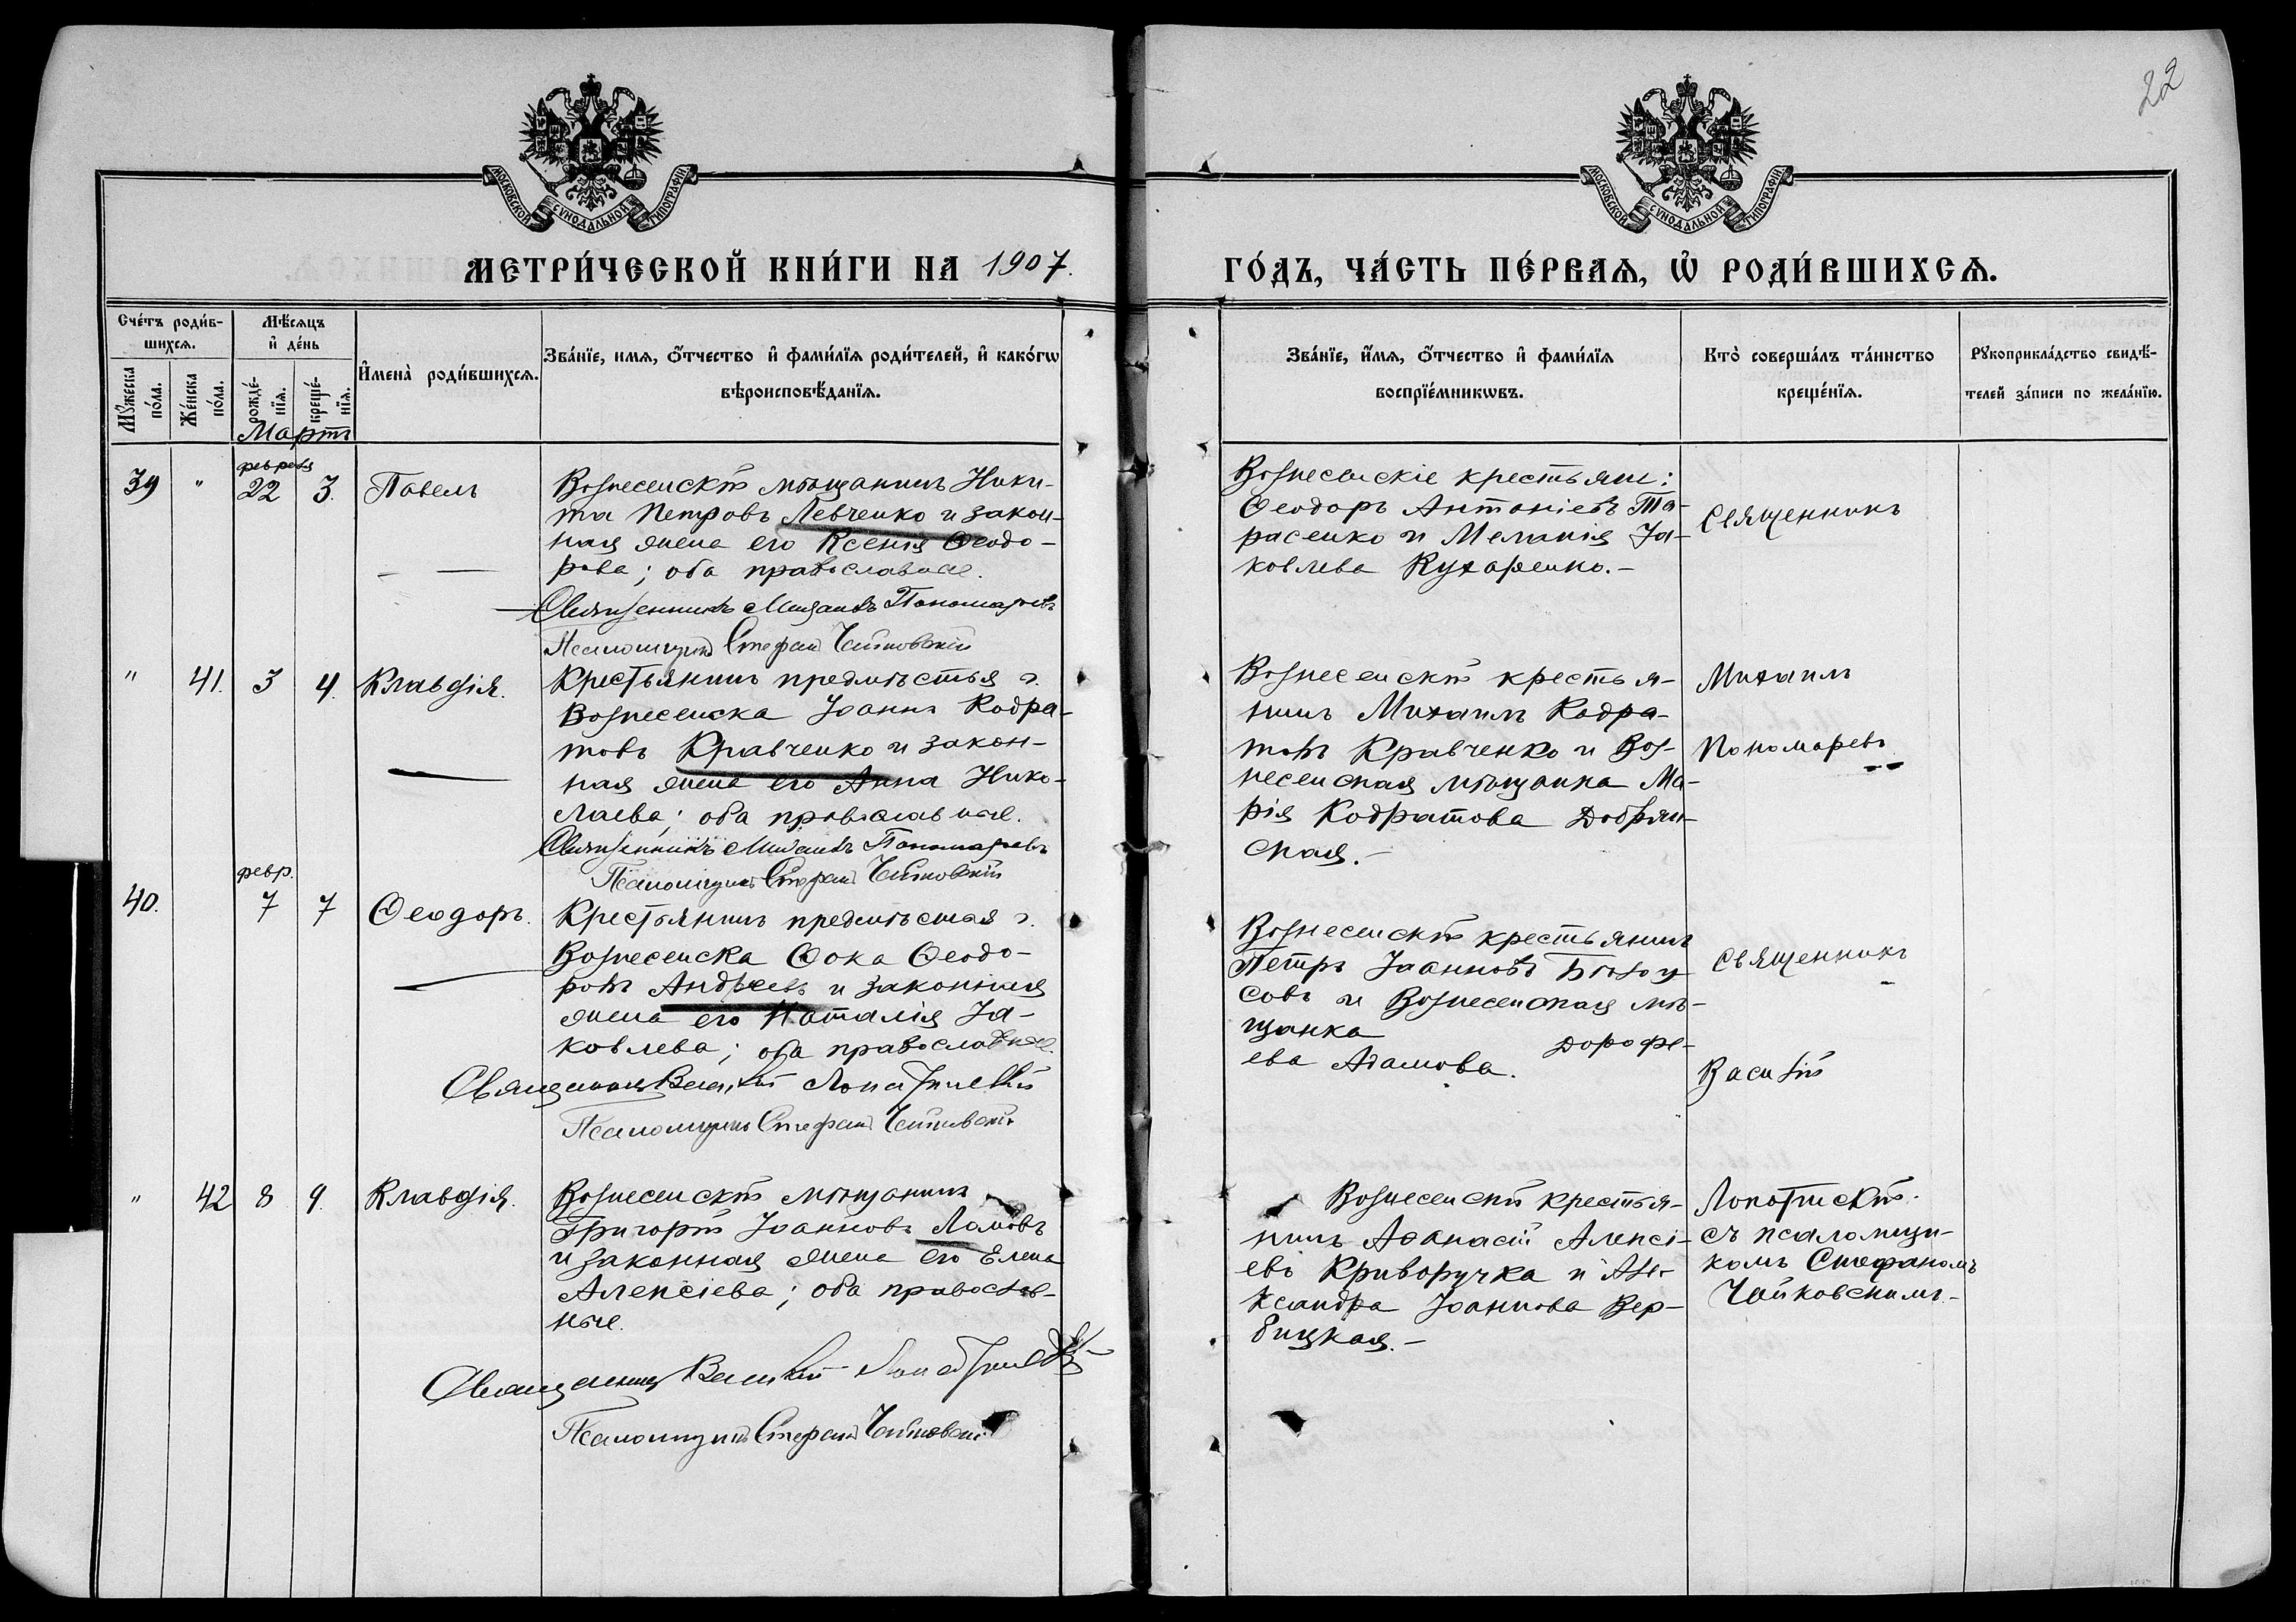 22
МОСКОВСКОЙ СѴНОДАЛЬНОЙ ТИПОГРАФІИ
МОСКОВСКОЙ СѴНОДАЛЬНОЙ ТИПОГРАФІИ
МЕТРИ́ЧЕСКОЙ КНИ́ГИ НА 1907.
ГО́ДЪ, ЧА́СТЬ ПЕ́РВАѦ, Ѽ РОДИ́ВШИХСѦ.
Сче́тъ роди́в-
шихсѧ.
Мꙋ́жеска
по́ла.
Же́нска
по́ла.
Мѣ́сѧцъ
и҆ де́нь
рожде́-
нїѧ.
креще́-
нїѧ.
И҆мена̀ роди́вшихсѧ.
Зва́нїе, имѧ, ѻ҆́тчество и҆ фами́лїѧ роди́телей, и҆ како́гѡ
вѣроисповѣ́данїѧ.
Зва́нїе, и҆́мѧ, ѻ҆́тчество и҆ фами́лїѧ
воспрїе́мникѡвъ.
Кто̀ соверша́лъ та́инство
креще́нїѧ.
Рꙋкоприкла́дство свидѣ́-
телей за́писи по жела́нїю.
Мартъ
39 " февраля 22 3. Павелъ
Вознесенскій мѣщанинъ Ники-
та Петровъ Левченко и закон-
ная жена его Ксенія Ѳеодо-
рова; оба православные.
Священникъ Михаилъ Пономаревъ
Псаломщикъ Стефанъ Чайковскій
Вознесенскіе крестьяне:
Ѳеодоръ Антоніевъ Та-
расенко и Меланія Іа-
ковлева Кухаренко.-
Священникъ
" 41. 3 4. Клавдія.
Крестьянинъ предмѣстья г.
Вознесенска Іоаннъ Кодра-
товъ Кравченко и закон-
ная жена его Анна Нико-
лаева; оба православные.
Священникъ Михаилъ Пономаревъ
Псаломщикъ Стефанъ Чайковскій
Вознесенскій крестья-
нинъ Михаилъ Кодра-
товъ Кравченко и Воз-
несенская мѣщанка Ма-
рія Кодратова Добрян-
ская.-
Михаилъ
Пономаревъ
40. февр. 7 7 Ѳеодоръ.
Крестьянинъ предмѣстья г.
Вознесенска Ѳока Ѳеодо-
ровъ Андреевъ и законная
жена его Наталія Іа-
ковлева; оба православные.
Священникъ Василій Лопатинскій
Псаломщикъ Стефанъ Чайковскій
Вознесенскій крестьянинъ
Петръ Іоанновъ Бѣлоу
совъ и Вознесенская мѣ-
щанка Дорофе-
ева Адамова.
Священникъ
Василій
" 42 8 9. Клавдія.
Вознесенскій мѣщанинъ
Григорій Іоанновъ Ламовъ
и законная жена его Елена
Алексіева; оба православ-
ные.
Священникъ Василій Лопатинскій
Псаломщикъ Стефанъ Чайковскій
Вознесенскій крестья-
нинъ Аѳанасій Алексі-
евъ Криворучка и Але-
ксандра Іоаннова Вер-
бицкая.-
Лопатинскій
съ псаломщи-
комъ Стефаномъ
Чайковскимъ.